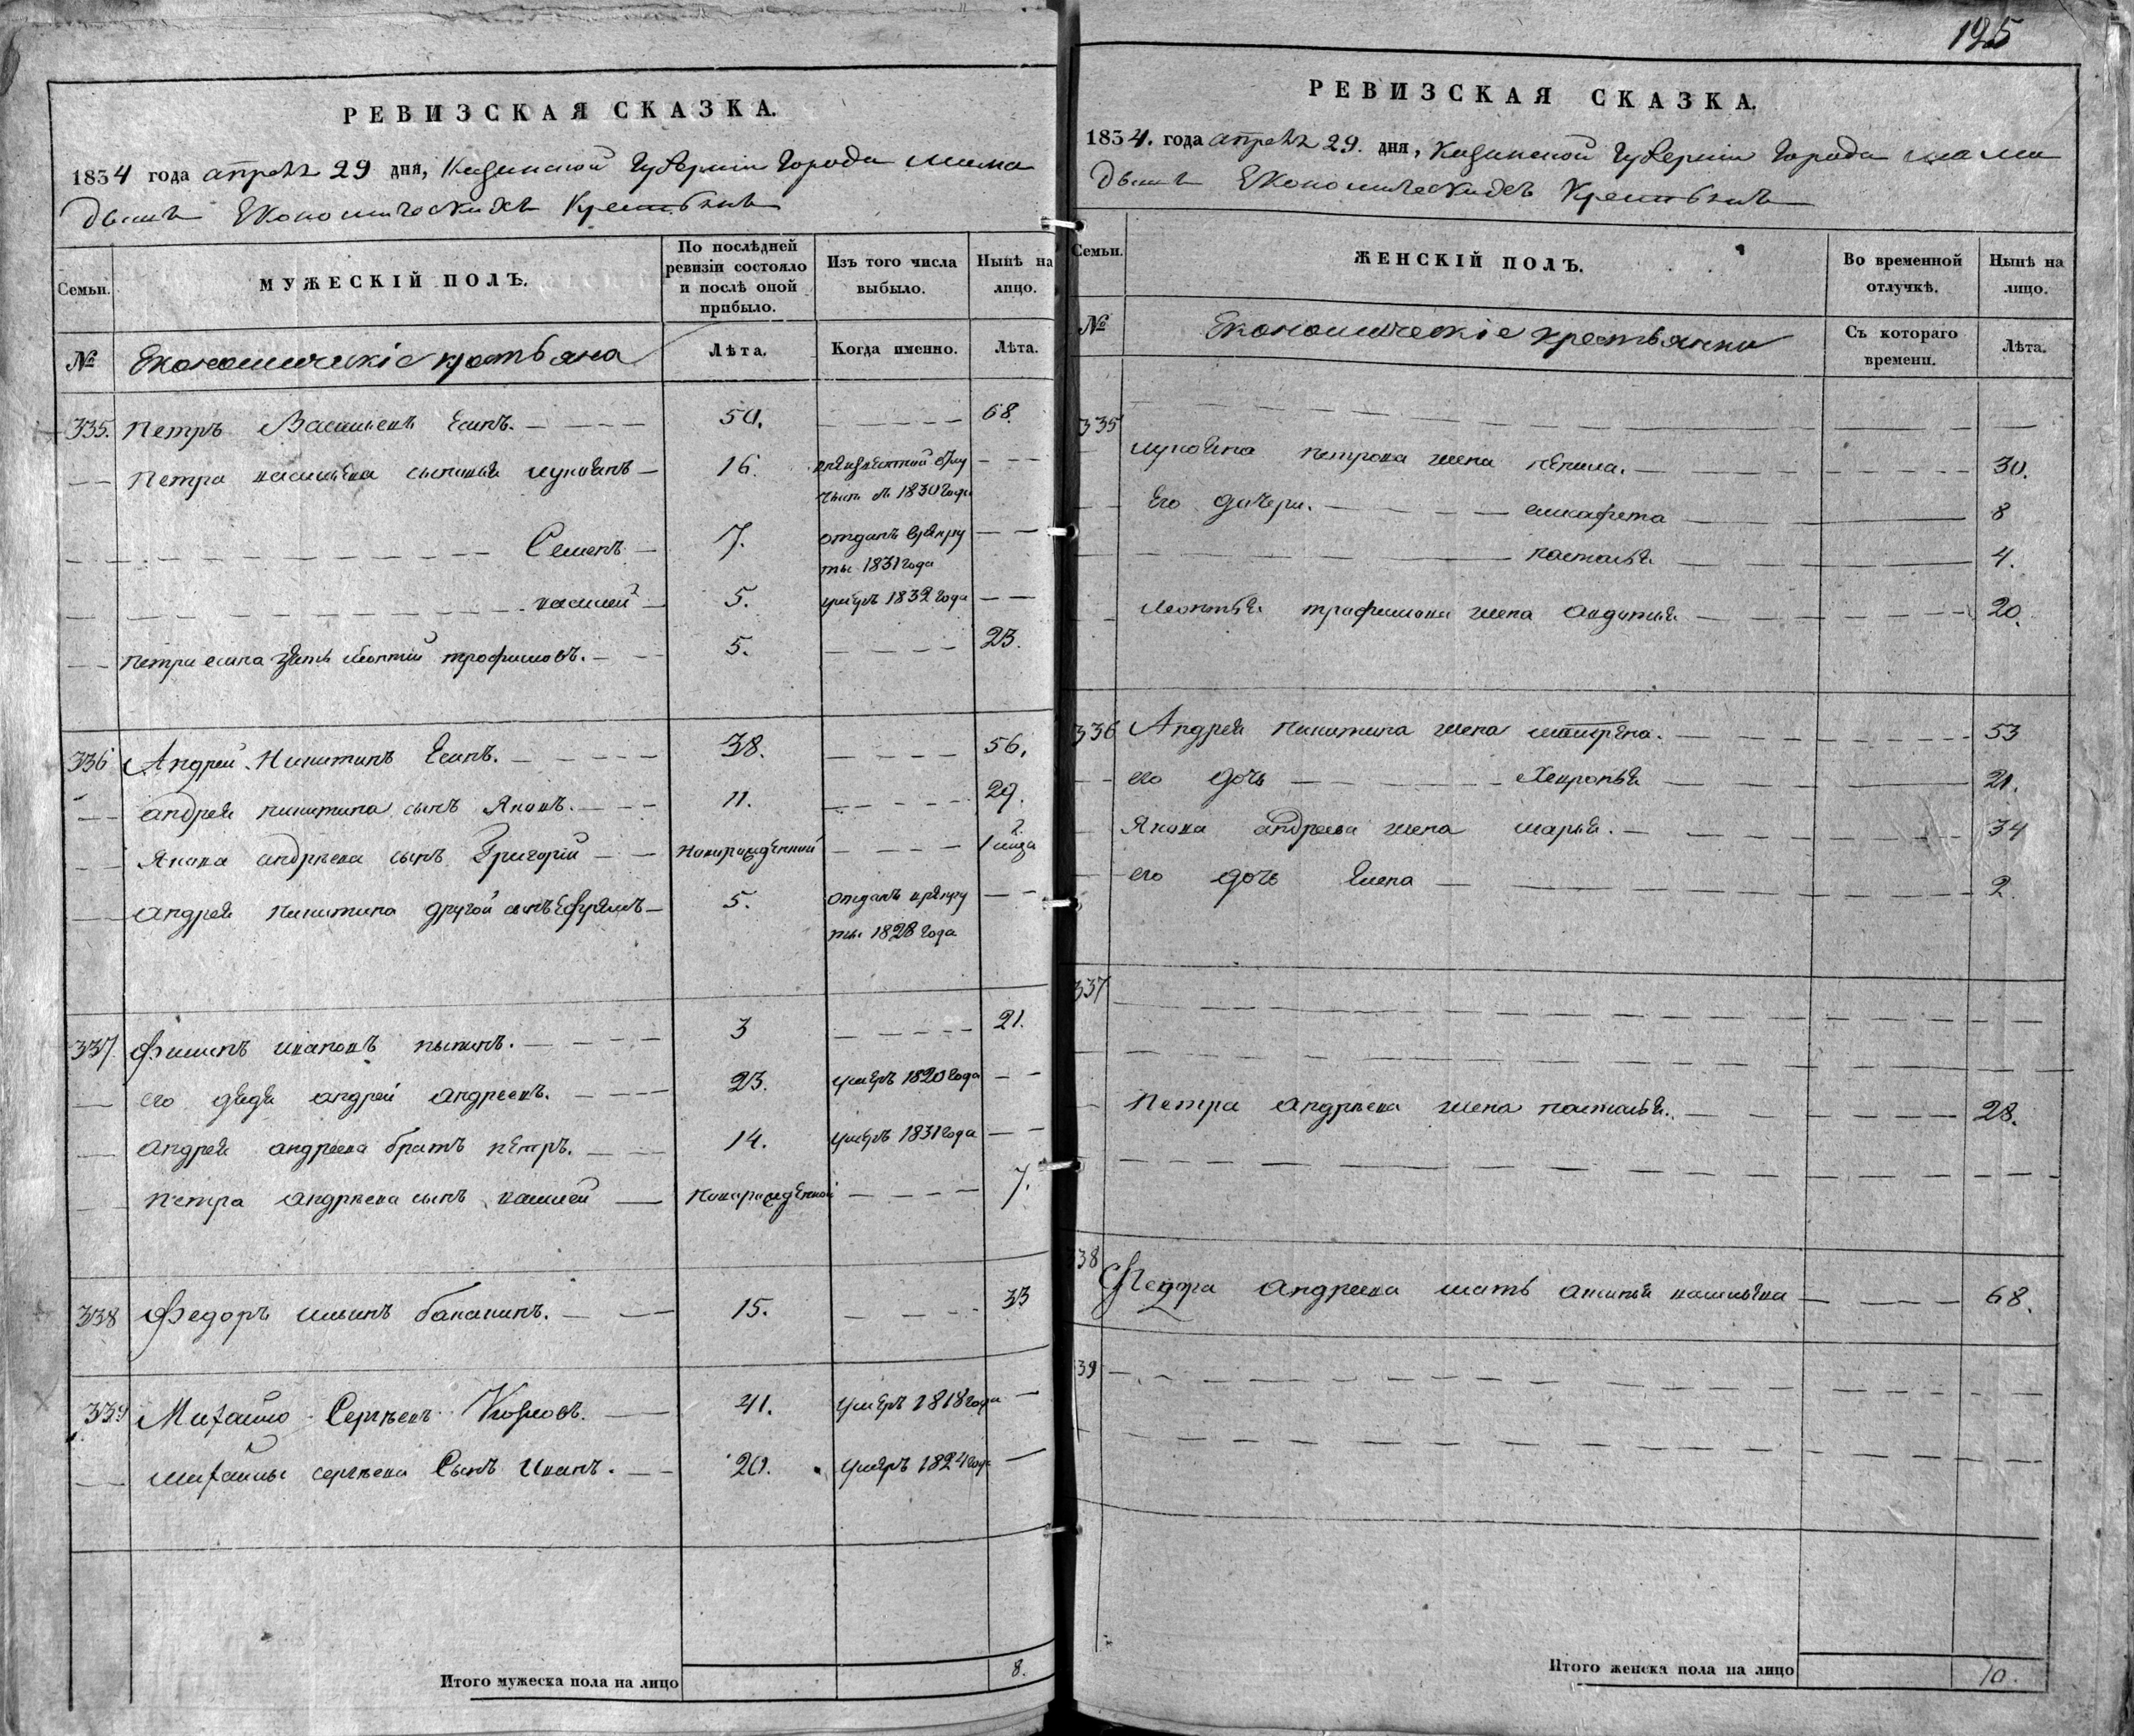 РЕВИЗСКАЯ СКАЗКА.
1834 года апреля 29 дня, Казанской Губернии Города мама
дышъ Економическихъ Крестьянъ
Семьи.
МУЖЕСКІЙ ПОЛЪ.
По послѣдней ревизіи состояло и послѣ оной прибыло.
Изъ того числа выбыло.
Нынѣ на лицо.
№
Економическіе крестьяна
Лѣта.
Когда именно.
Лѣта.
335. Петръ Васильевъ Есинъ. 50. 68.
Петра васильева сыновья 16.
1830 года
Семенъ 7. отданъ врекру
ты 1831 года
василей 5. умеръ 1832 года
петра есина зять леонтий трофимовъ. 5. 23.
336 Андрей Никитинъ Есинъ. 38. 56.
андрея никитина сынъ Яковъ. 11. 29.
Якова андреева сынъ Григорій новорожденной
андрея никитина другой сынъ Ефремъ 5. отданъ врекру
ты 1828 года
337. Филипъ ивановъ 3 21.
его дядя андрей андреевъ. 23. умеръ 1820 года
андрея андреева братъ петръ. 14. умеръ 1831 года
петра андреева сынъ василей новорожденной 7.
338 Федоръ ильинъ баканинъ. 15. 33
339 Михайло Сергѣевъ Козловъ. 41. умеръ 1818 года
михайлы сергѣева Сынъ Иванъ. 20. умеръ 1824 года
Итого мужеска пола на лицо 8.
125
РЕВИЗСКАЯ СКАЗКА.
1834. года апреля 29. дня, Казанской Губернии Города мама
дышъ Економическихъ Крестьянъ
Семьи.
ЖЕНСКІЙ ПОЛЪ.
Во временной отлучкѣ.
Нынѣ на лицо.
№
Економическіе крестьянки
Съ котораго времени.
Лѣта.
335
петрова жена 30.
Его дочери. 8
наталья 4.
леонтья трофимова жена авдотья 20.
336 Андрея никитина жена матрена. 53
его дочь Хевронья 21.
Якова андреева жена марья. 34
его дочь Елена 2.
337
Петра андреева жена наталья. 28.
338
Федора андреева мать аксинья васильева 68.
339
Итого женска пола на лицо 10.